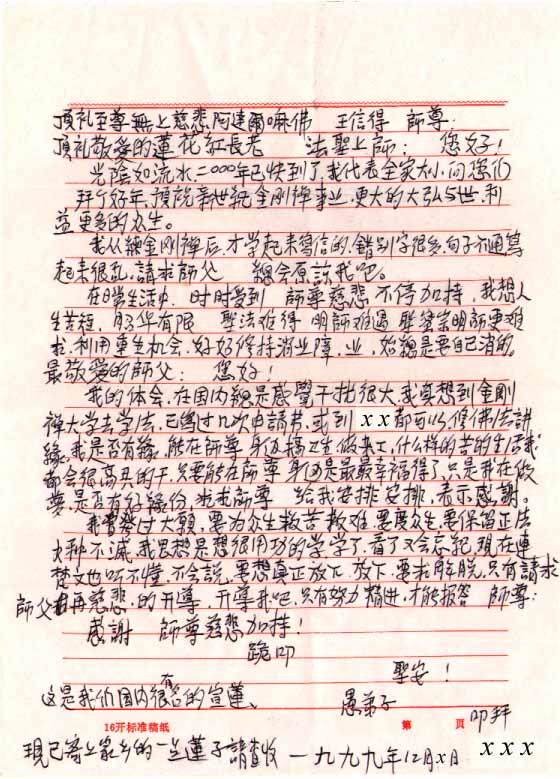 頂礼至尊無上慈悲阿達爾嘛佛 王信得 師尊:
頂礼敬愛的蓮花紅長老 法聖上師: 您好!
光陰如流水二000年已快到了,我代表全家大小向您们
拜个好年,預祝 金刚禅事业,更大的大弘与世,利
益更多的众生。
我从練金刚禅后,才学起来寫信的,錯别字很多,句子不通寫
起来很乱,請求师父 總会原諒我吧。
在日常生活中,时时受到 師尊慈悲不停加持,我想人
生苦短, 华有限 聖法难得 明師难遇 明師更难
求,利用 生机会,好好修持消业障,业,始總是要自己消的。
最敬爱的師父: 您好!
我的体会,在国内總是感覺干扰很大,我真想到金剛
禅大学去学法,已 过几次申請书,或到 x x 都可以修佛法講
緣,我是否有緣,能在師尊身边搞卫生做杂工,什么样的苦的生活我
都会很高兴的干,只要能在師尊身边是最最幸福得了,只是我在做
夢,是否有好緣份, 我師尊 给我安排安排,表示感謝。
我曾發过大願,要为众生救苦救难,要度众生,要保留正法
火种不滅,我思想是想很用功的学学了,看了又会忘記,現在連
梵文也听不懂,不会說,要想真正放下放下,要求解脱,只有請求
師父再慈悲,的开導,开導我吧,只有努力精进,才能报答 師尊:
感謝 師尊慈悲加持!
跪叩
聖安!
这是我们国内很有名的宣蓮、 愚弟子
16开标准稿纸 第 页 叩拜
現已寄上家乡的一些蓮子請查收 一九九九年12月x日 x x x